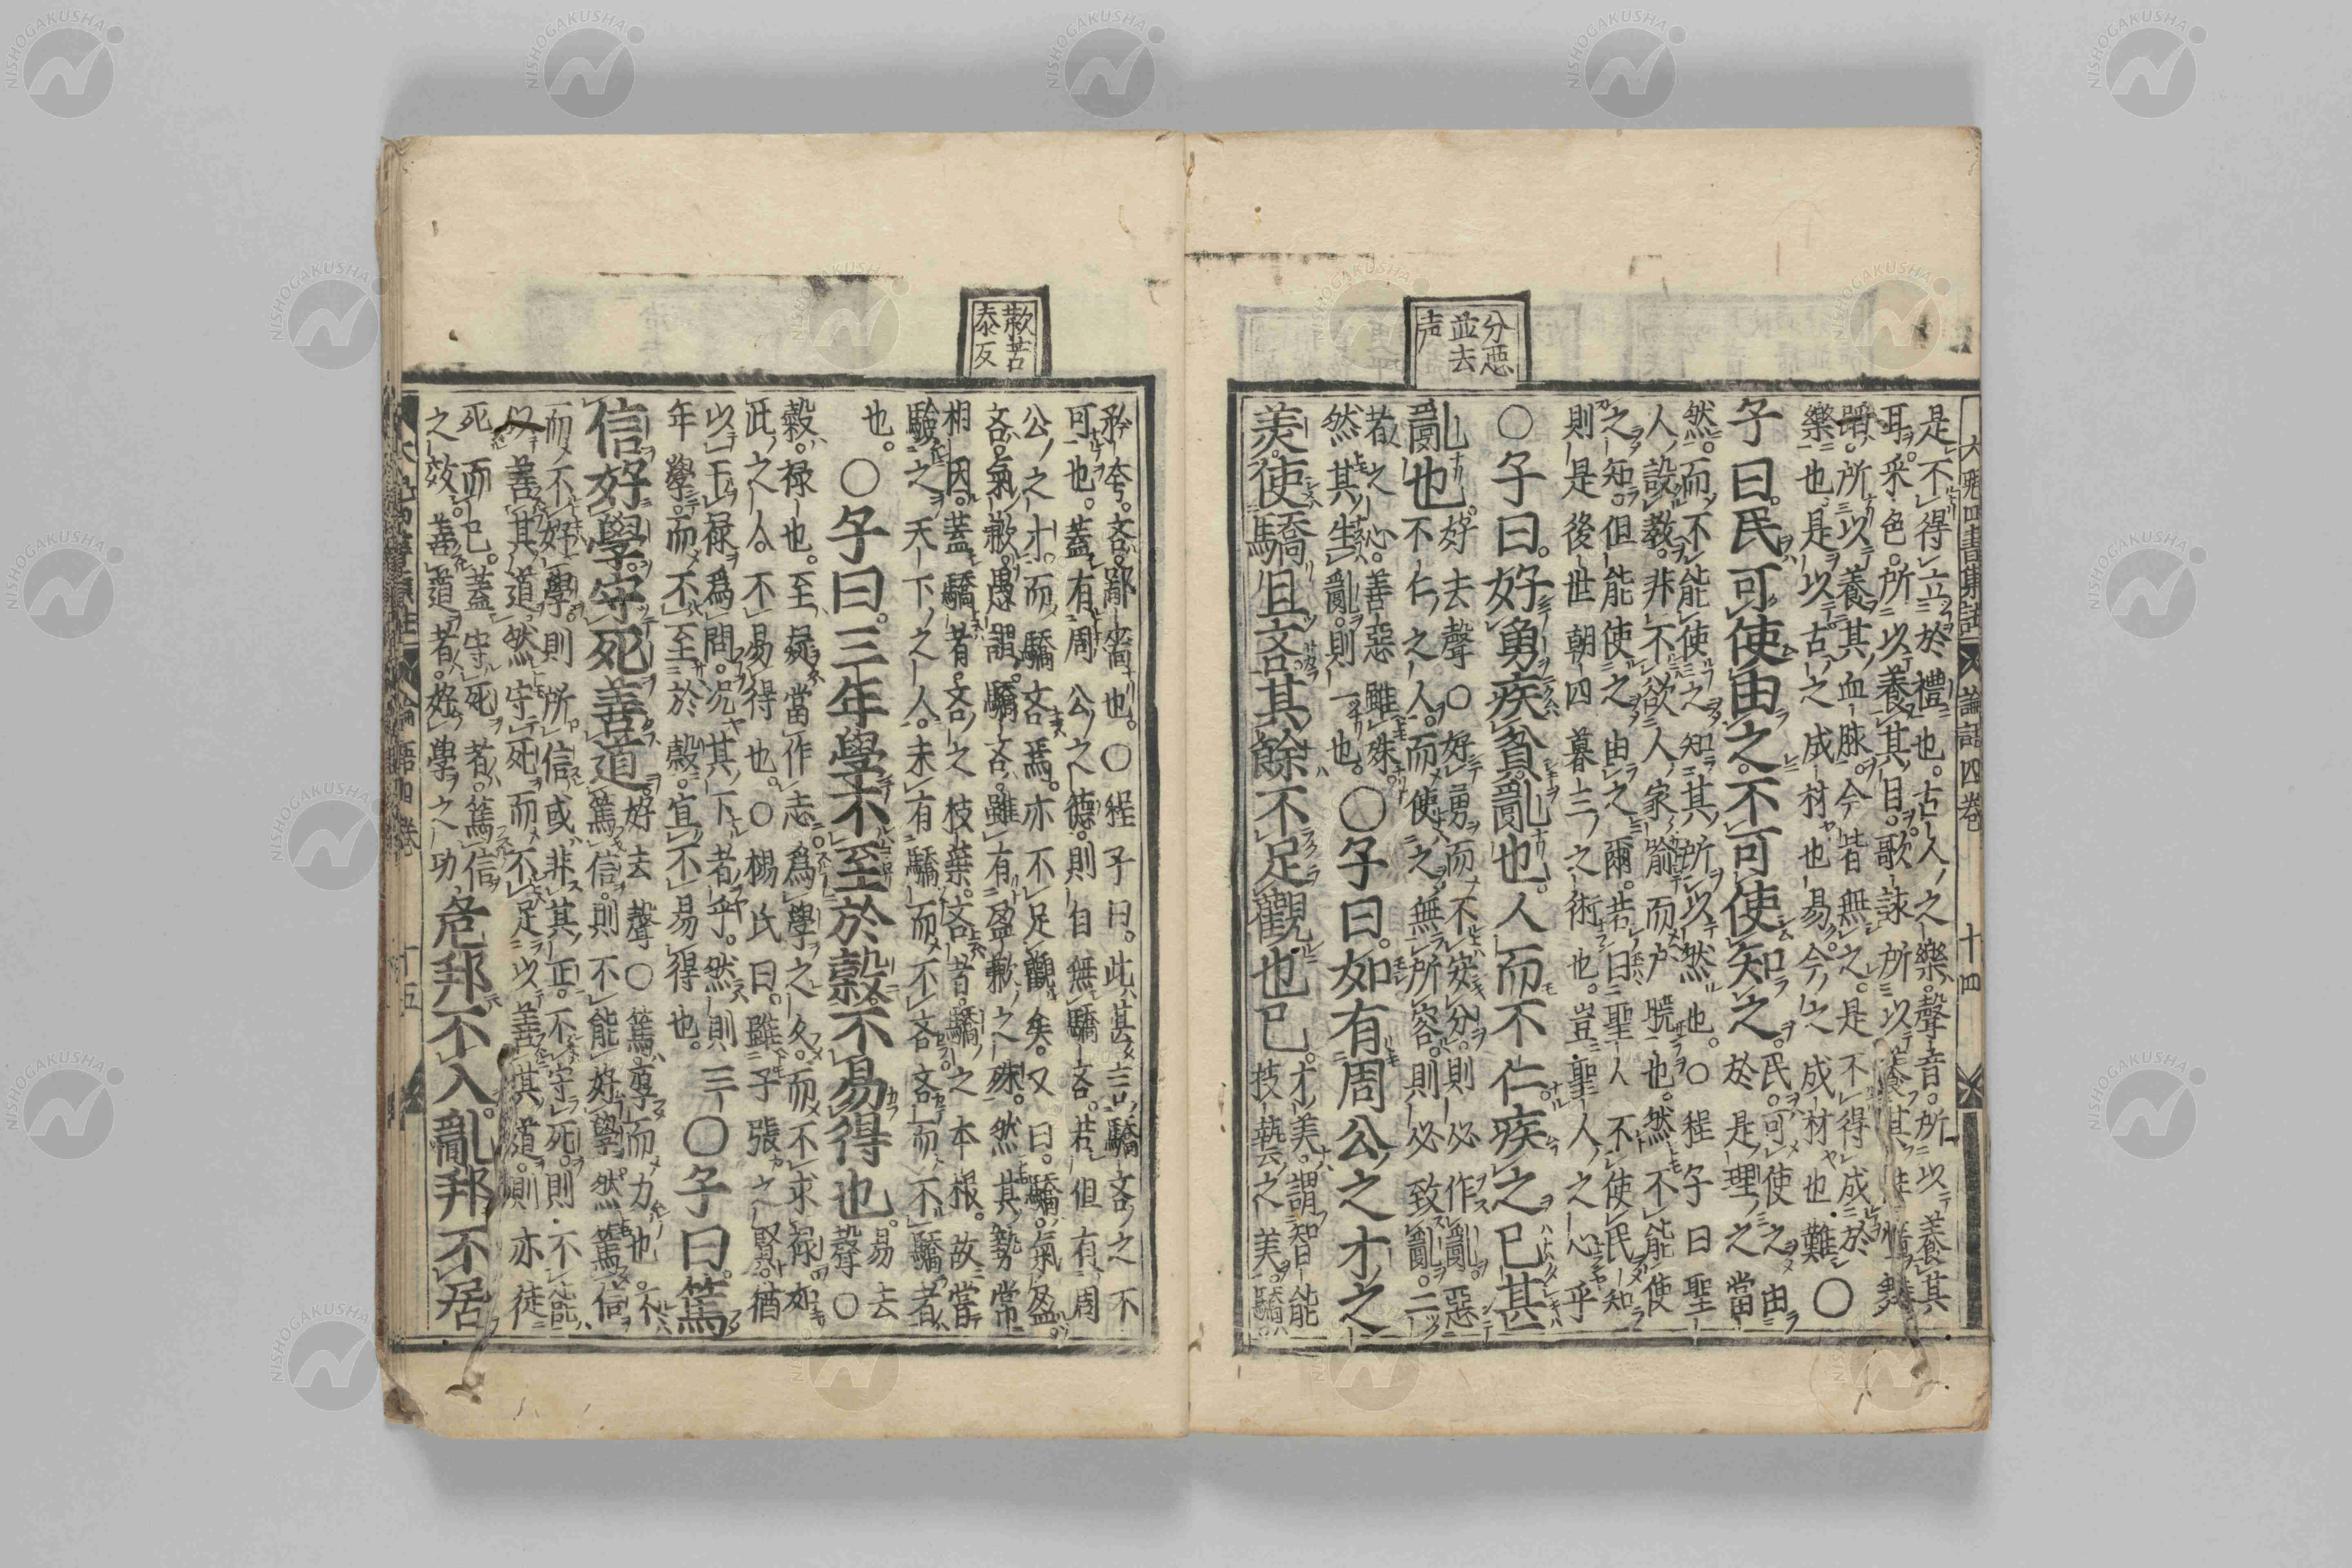 分惡
並去
声
大魁四書集註 論語四巻 十四
是不得立於禮也。古人之樂。聲音。所以養其
耳。采色。所以養其目。歌詠所以養其性情。舞
蹈。所以養其血脉。今皆無之。是不得成於
樂也。是以古之成材也易。今之成材也難○
子曰。民可使由之。不可使知之。民可使之由
於是理之當
然。而不能使之知其所以然也。○程子曰聖
人設教。非不欲人家喻而戸曉也。然不能使
之知。但能使之由之爾。若曰聖人不使民知
則是後世朝四暮三之術也。豈聖人之心乎
○子曰。好勇疾貧。亂也。人而不仁。疾之已甚
亂也。好去聲○好勇而不安分。則必作亂。惡
不仁之人。而使之無所容。則必致亂。二
者之心。善惡雖殊
然其生亂。則一也。○子曰。如有周公之才之
美。使驕且吝。其餘不足觀也已。才美。謂智能
技藝之美。驕
歉苦
泰反
矜夸。吝。鄙嗇也。○程子曰。此甚言驕吝之不
可也。蓋有周公之德。則自無驕吝。若但有周
公之才。而驕吝焉。亦不足觀矣。又曰。驕。氣盈。
吝。氣歉。愚謂驕吝。雖有盈歉之殊。然其勢常
相因。蓋驕者。吝之枝葉。吝者。驕之本根。故當
驗之天下之人。未有驕而不吝。吝而不驕者
也。○子曰。三年學不至於穀。不易得也。易去
聲○
穀。禄也。至。疑當作志。爲學之久。而不求禄。如
此之人。不易得也。○楊氏曰。雖子張之賢。猶
以干禄爲問。况其下者乎。然則三
年學。而不至於穀。宜不易得也。○子曰。篤
信好學。守死善道。好去聲○篤。厚而力也。不
篤信。則不能好學。然篤信
而不好學。則所信或非其正。不守死。則不能
以善其道。然守死而不足以善其道。則亦徒
死而已。蓋守死者。篤信
之效。善道者。好學之功危邦不入。亂邦不居
論語四巻 十五